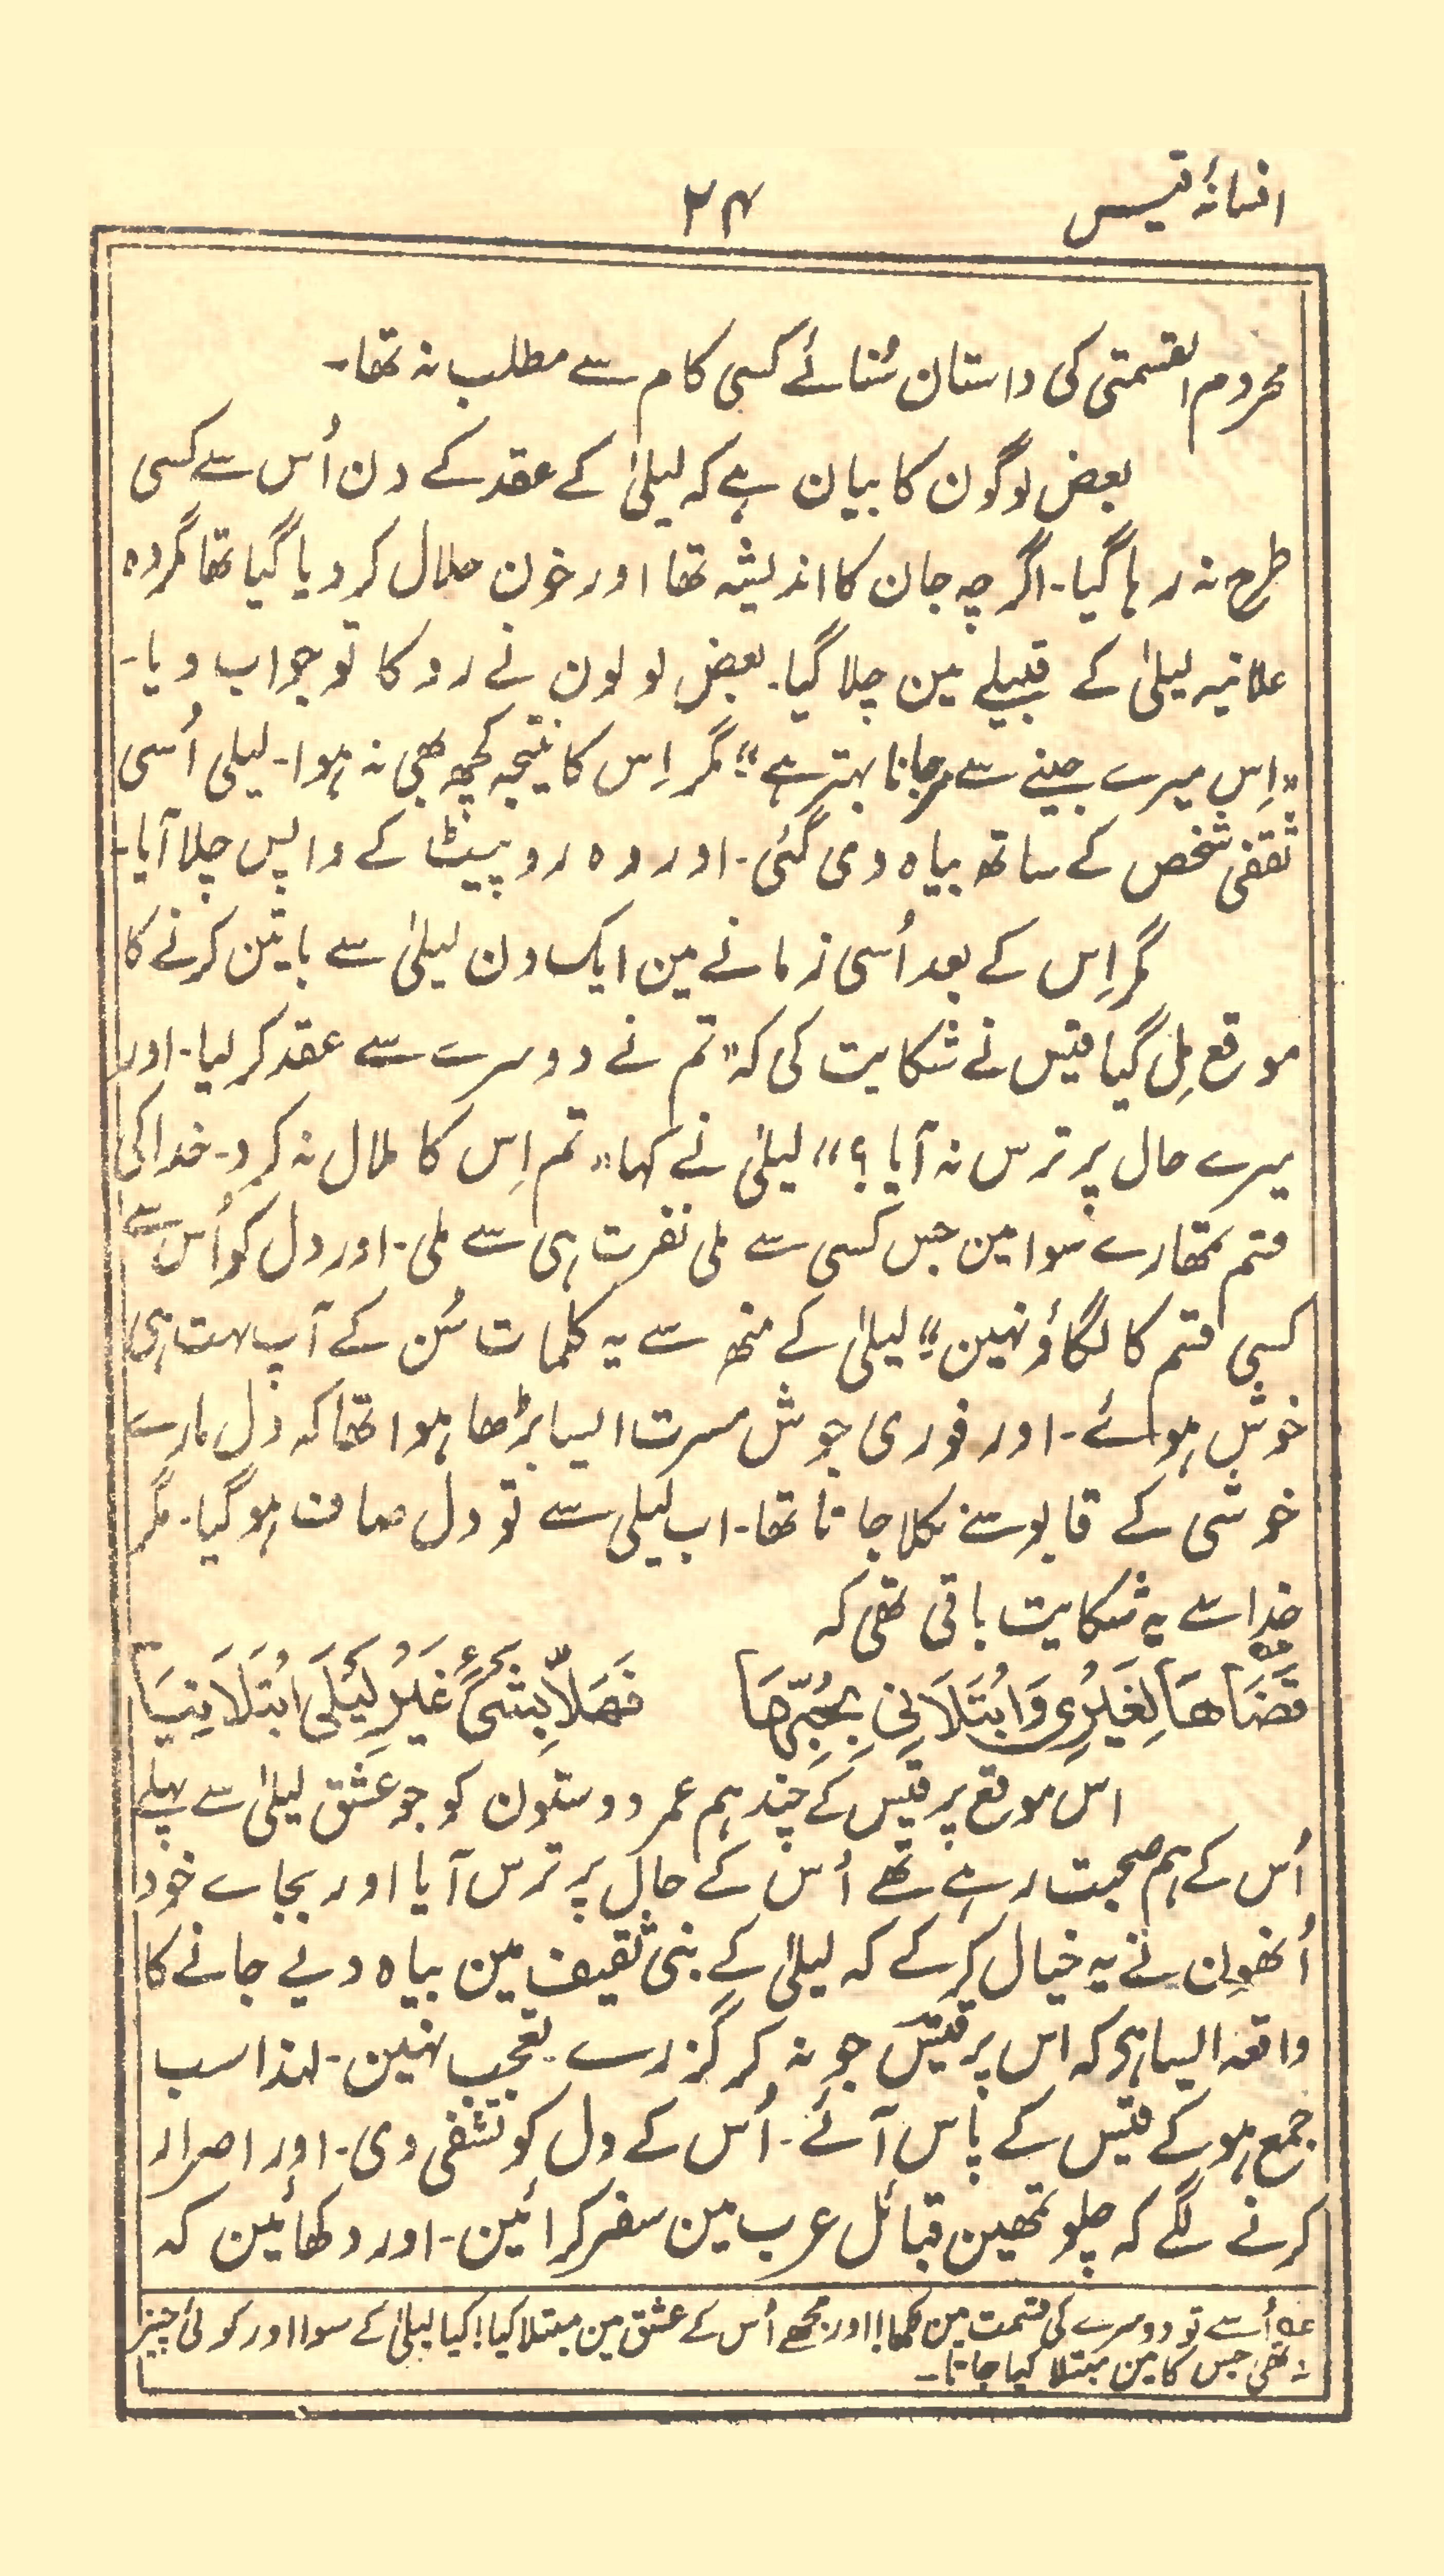 افسانۂ قیس
۲۴
محروم القسمتی کی داستان سُنائے کسی کام سے مطلب نہ تھا۔
بعض لوگون کا بیان ہے کہ لیلیٰ کے عقد کے دن اُس سے کسی
طرح نہ رہا گیا۔ اگرچہ جان کا اندیشہ تھا اور خون حلال کر دیا گیا تھا مگر وہ
علانیہ لیلیٰ کے قبیلے مین چلا گیا۔ بعض لولون نے روکا تو جواب دیا۔
"اِس میرے جینے سے مرجانا بہتر ہے" مگر اِس کا نتیجہ کچھ بھی نہ ہوا۔ لیلی اُسی
ثقفی شخص کے ساتھ بیاہ دی گئی۔ اور وہ رو پیٹ کے واپس چلا آیا۔
مگر اِس کے بعد اُسی زمانے مین ایک دن لیلیٰ سے باتین کرنے کا
موقع مِل گیا قیس نے شکایت کی کہ "تم نے دوسرے سے عقد کر لیا۔ اور
میرے حال پر ترس نہ آیا؟" لیلیٰ نے کہا "تم اِس کا ملال نہ کرو۔ خدا کی
قسم تمھارے سوا مین جس کسی سے ملی نفرت ہی سے ملی۔ اور دل کو اُس سے
کسی قسم کا لگاؤ نہین" لیلیٰ کے منھ سے یہ کلمات سُن کے آپ بہت ہی
خوش ہوئے۔ اور فوری جوش مسرت ایسا بڑھا ہوا تھا کہ دل مارے
خوشی کے قابو سے نکلا جاتا تھا۔ اب لیلی سے تو دل صاف ہو گیا۔ مگر
خدا سے یہ شکایت باقی تھی کہ
قَضَاهَا لِغَيْرِي وَابْتَلَانِي بِحُبِّهَا فَهَلَّا بِشَيْءٍ غَيْرِ لَيْلَى ابْتَلَانِيَا
اس موقع پر قیس کے چند ہم عمر دوستون کو جو عشق لیلیٰ سے پہلے
اُس کے ہم صحبت رہے تھے اُس کے حال پر ترس آیا اور بجاے خود
اُنھون نے یہ خیال کر کے کہ لیلیٰ کے بنی ثقیف مین بیاہ دیے جانے کا
واقعہ ایسا ہی کہ اس پر قیس جو نہ کر گزرے تعجب نہین۔ لہذا سب
جمع ہو کے قیس کے پاس آئے۔ اُس کے دل کو تشفی دی۔ اور اصرار
کرنے لگے کہ چلو تمھین قبائل عرب مین سفر کرائین۔ اور دکھائین کہ
عہ اُسے تو دوسرے کی قسمت مین لکھا! اور مجھے اُس کے عشق مین مبتلا کیا! کیا لیلیٰ کے سوا اور کوئی چیز
نہ تھی جس کا مین مبتلا کیا جاتا۔